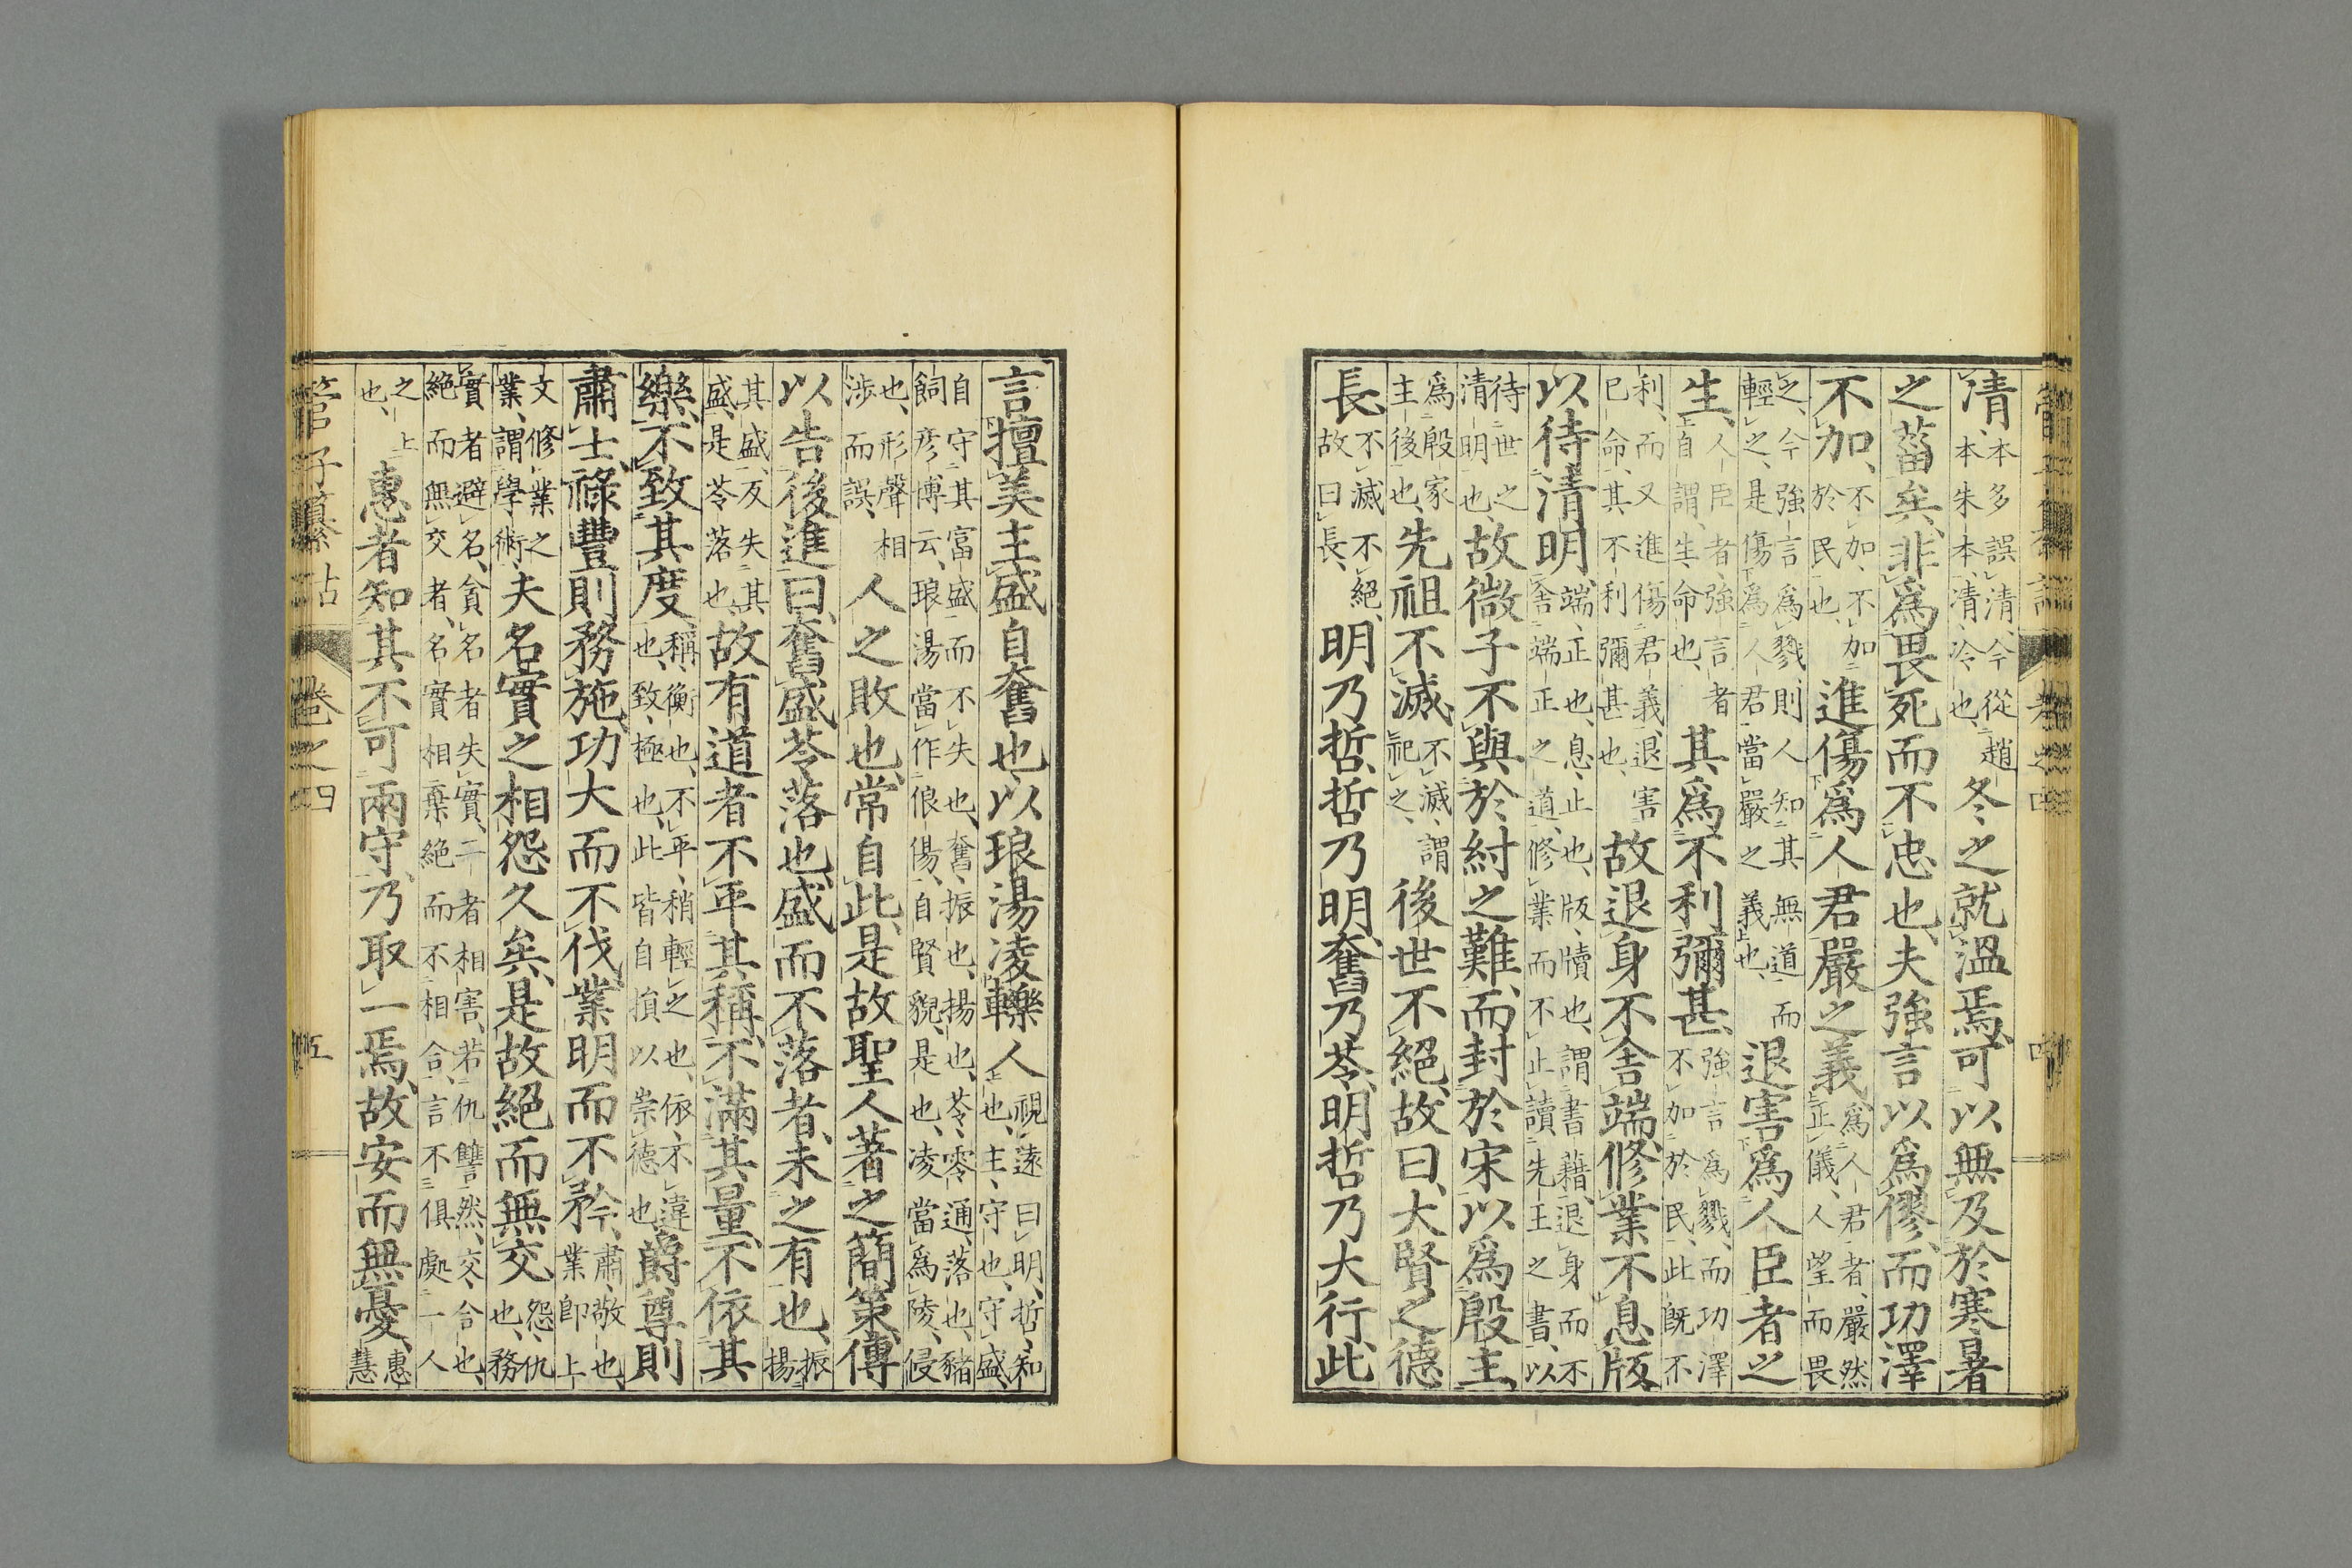 管子纂詁 卷之四 四
凊、本多誤清、今從趙本朱本、凊、冷也、冬之就溫焉、可以無及於寒暑
之菑矣、非爲畏死而不忠也、夫強言以爲僇、而功澤
不加、不加、不加於民也、進傷爲人君嚴之義、爲人君者、嚴然正儀、人望而畏
之、今強言爲戮、則人知其無道而輕之、是傷爲人君當嚴之義也、退害爲人臣者之
生、人臣者強言者自謂、生、命也、其爲不利彌甚、強言爲戮、而功澤不加於民、此既不
利、而又進傷君義、退害已命、其不利彌甚也、故退身不舍端、修業不息版、
以待清明、端、正也、息、止也、版、牘也、謂書藉、退身而不舍端正之道、修業而不止讀先王之書、以
待世之清明也、故微子不與於紂之難、而封於宋以爲殷主、
爲殷家主後也、先祖不滅、不滅、謂祀之、後世不絕、故曰、大賢之德
長、不滅不絕、故曰長、明乃哲、哲乃明、奮乃苓、明哲乃大行、此
言擅美主盛自奮也、以琅湯凌轢人、視遠曰明、哲、知也、主、守也、守盛、
自守其富盛而不失也、奮、振也、揚也、苓、零通、落也、豬飼彥博云、琅湯當作俍偒、自賢貌、是也、凌當爲陵、侵
也、形聲相涉而誤、人之敗也、常自此、是故聖人著之簡策、傳
以告後進曰、奮盛苓落也、盛而不落者、未之有也、振揚
其盛、反失其盛、是苓落也、故有道者不平其稱、不滿其量、不依其
樂、不致其度、稱、衡也、不平、稍輕之也、依、不違也、致、極也、此皆自損以崇德也、爵尊則
肅士、祿豐則務施、功大而不伐、業明而不矜、肅、敬也、業卽上
文修業之業、謂學術、夫名實之相怨久矣、是故絕而無交、怨、仇也、務
實者避名、貪名者失實、二者相害、若仇讐然、交、合也、絕而無交者、名實相棄絕而不相合、言不俱處一人
之上也、惠者知其不可兩守、乃取一焉、故安而無憂、惠慧
管子纂詁 卷之四 五